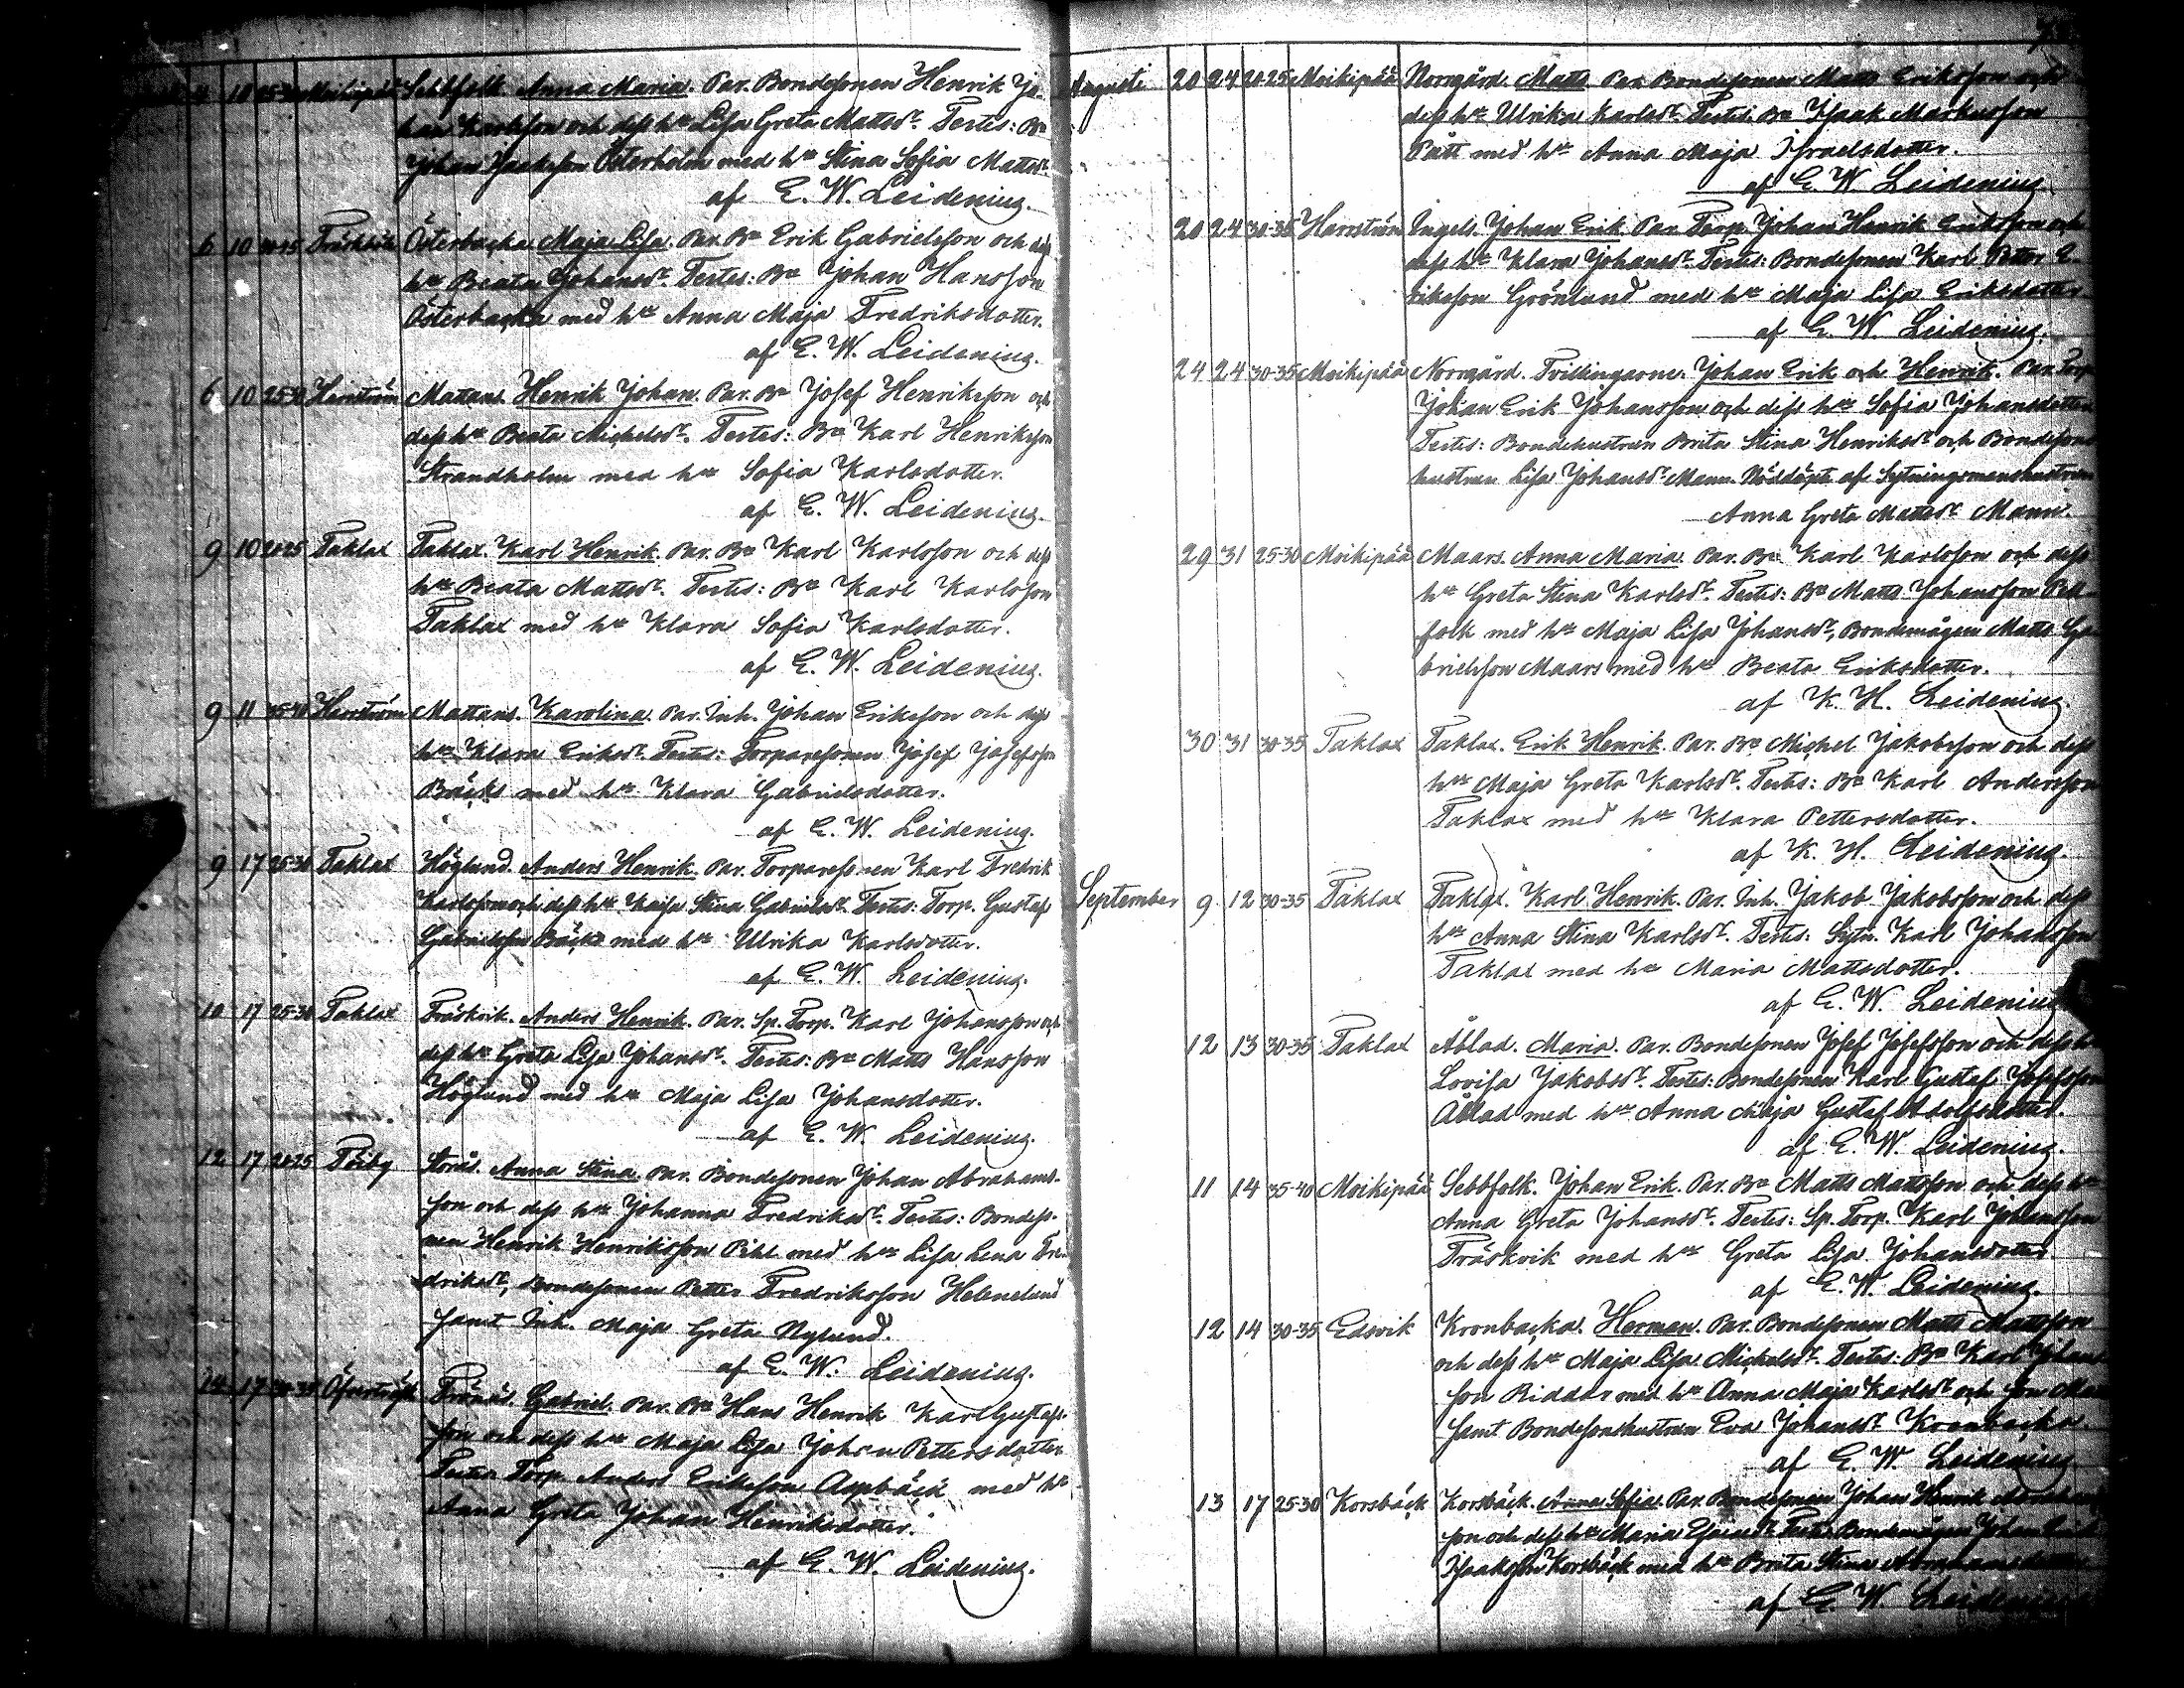 4 10 25-30 Moikipää Sebbfolk. Anna Maria. Par. Bondesonen Henrik Jo-
han Karlsson och dess hu Lisa Greta Mattsdr. Testes: Be
Johan Isaksson Österholm med hu Stina Sofia Mattsdr
af E. W. Leidenius.
6 10 Träskböle Österbacka. Maja Lisa. Par. Be Erik Gabrielsson och dess
hu Beata Johansdr. Testes: Be Johan Hansson
Österbacka med hu Anna Maja Fredriksdotter.
af E. W. Leidenius.
6 10 25-30 Harrström Mattans. Henrik Johan. Par. Be Josef Henriksson och
dess hu Beata Michelsdr. Testes: Be Karl Henriksson
Strandholm med hu Sofia Karlsdotter.
af E. W. Leidenius.
9 10 20-25 Taklax Taklax. Karl Henrik. Par. Be Karl Karlsson och dess
hu Beata Mattsdr. Testes: Be Karl Karlsson
Taklax med hu Klara Sofia Karlsdotter.
af E. W. Leidenius.
9 11 35-40 Harrström Mattans. Karolina. Par. Inh. Johan Eriksson och dess
hu Klara Eriksdr. Testes: Torparesonen Josef Josefsson
Bäcks med hu Klara Gabrielsdotter.
af E. W. Leidenius.
9 17 25-30 Taklax Höglund. Anders Henrik. Par. Torparesonen Karl Fredrik
Karlsson och dess hu Kajsa Stina Gabrielsdr. Testes: Torp. Gustaf
Gabrielsson Bäcks med hu Ulrika Karlsdotter.
af E. W. Leidenius.
10 17 25-30 Taklax Träskvik. Anders Henrik. Par. Sp. Torp. Karl Johansson och
dess hu Greta Lisa Johansdr. Testes: Be Matts Hansson
Höglund med hu Maja Lisa Johansdotter.
af E. W. Leidenius.
12 17 20-25 Töjby Storås. Anna Stina. Par. Bondesonen Johan Abrahams-
son och dess hu Johanna Fredriksdr. Testes: Bondeso-
nen Henrik Henriksson Pihl med hu Lisa Lena Fre-
driksdr, Bondesonen Petter Fredriksson Helenelund
samt Inh. Maja Greta Nylund.
af E. W. Leidenius.
14 17 30-35 Öfverträsk Gabriel. Par. Be Hans Henrik Karl Gustafs-
son och dess hu Maja Lisa Johan Pettersdotter
Testes Torp. Anders Eriksson Aspbäck med hu
Anna Greta Johan Henriksdotter.
af E. W. Leidenius.
Augusti 20 24 20-25 Moikipää Norrgård. Matts. Par. Bondesonen Matts Eriksson och
dess hu Ulrika Karlsdr. Testes. Be Isaak Markusson
Pått med hu Anna Maja Israelsdotter.
af E. W. Leidenius
20 24 30-35 Harrström Ingels. Johan Erik. Par. Torp. Johan Henrik Eriksson och
dess hu Klara Johansdr. Testes: Bondesonen Karl Petter E-
riksson Grönlund med hu Maja Lisa Eriksdotter
af E. W. Leidenius.
24 24 30-35 Moikipää Norrgård. Tvillingarne. Johan Erik och Henrik. Par. Torp.
Johan Erik Johansson och dess hu Sofia Johansdotter
Testes: Bondehustrun Brita Stina Henriksdr och Bondesons
hustrun Lisa Johansdr Mann. Nöddöpte af Sytningsmanshustrun
Anna Greta Mattsdr Mann.
29 31 25-30 Moikipää Maars. Anna Maria. Par. Be Karl Karlsson och dess
hu Greta Stina Karlsdr. Testes: Be Matts Johansson Pell-
folk med hu Maja Lisa Johansdr, Bondemågen Matts Ga-
brielsson Maars med hu Beata Eriksdotter.
af K. H. Leidenius
30 31 30-35 Taklax Taklax. Erik Henrik. Par. Be Michel Jakobsson och dess
hu Maja Greta Karlsdr. Testes: Be Karl Andersson
Taklax med hu Klara Pettersdotter.
af K. H. Leidenius.
September 9 12 30-35 Taklax Taklax. Karl Henrik. Par. Inh. Jakob Jakobsson och dess
hu Anna Stina Karlsdr. Testes: Sytn. Karl Johansson
Taklax med hu Maria Mattsdotter.
af E. W. Leidenius
12 13 30-35 Taklax Åblad. Maria. Par. Bondesonen Josef Josefsson och dess hu
Lovisa Jakobsdr. Testes: Bondesonen Karl Gustaf Josefsson
Åblad med hu Anna Maja Gustaf Adolfsdotter.
af E. W. Leidenius.
11 14 35-40 Moikipää Sebbfolk. Johan Erik. Par. Be Matts Mattsson och dess hu
Anna Greta Johansdr. Testes: Sp. Torp. Karl Johansson
Träskvik med hu Greta Lisa Johansdotter
af E. W. Leidenius.
12 14 30-35 Edsvik Kronbacka. Herman. Par. Bondesonen Matts Mattsson
och dess hu Maja Lisa Michelsdr. Testes: Be Karl Johans-
son Riddar med hu Anna Maja Karlsdr och son
samt Bondesonshustrun Eva Johansdr Kronbacka.
af E. W. Leidenius
13 17 25-30 Korsbäck Korsbäck. Anna Sofia. Par. Bondesonen Johan Henrik
son och dess hu Maria Testes Bondemågen Johan Erik
Isaksson Korsbäck med hu Brita Stina Abrahamsdotter
af E. W. Leidenius